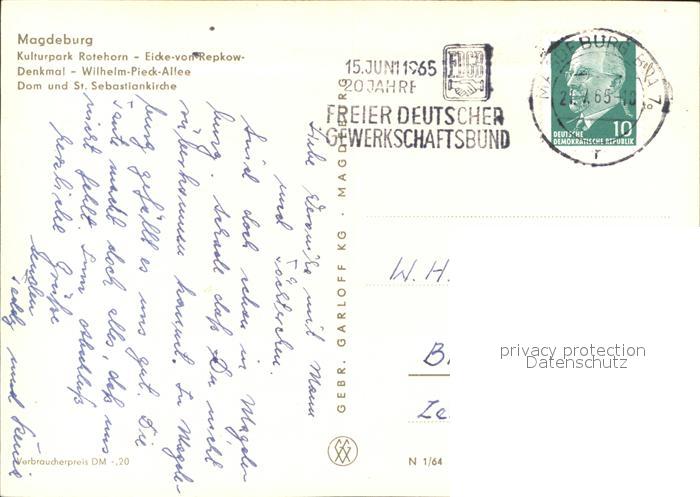 Magdeburg
Kulturpark Rotehorn – Eicke-von-Repkow-
Denkmal – Wilhelm-Pieck-Allee
Dom und St. Sebastiankirche
15. JUNI 1965
20 JAHRE
FDGB
FREIER DEUTSCHER
GEWERKSCHAFTSBUND
MAGDEBURG
65
DEUTSCHE
DEMOKRATISCHE REPUBLIK
10
r
Liebe mit Mann
und Töchterchen.
Sind doch schon in Magde-
burg. Schade daß Du nicht
kannst. In Magde-
burg gefällt es uns gut. Die
Tante macht doch alles, daß uns
nicht fehlt. Zum Abschluß
herzliche Grüße
senden
und
GEBR. GARLOFF KG · MAGDEBURG
W. H.
B
Ze
privacy protection
Datenschutz
Verbraucherpreis DM -,20
N 1/64